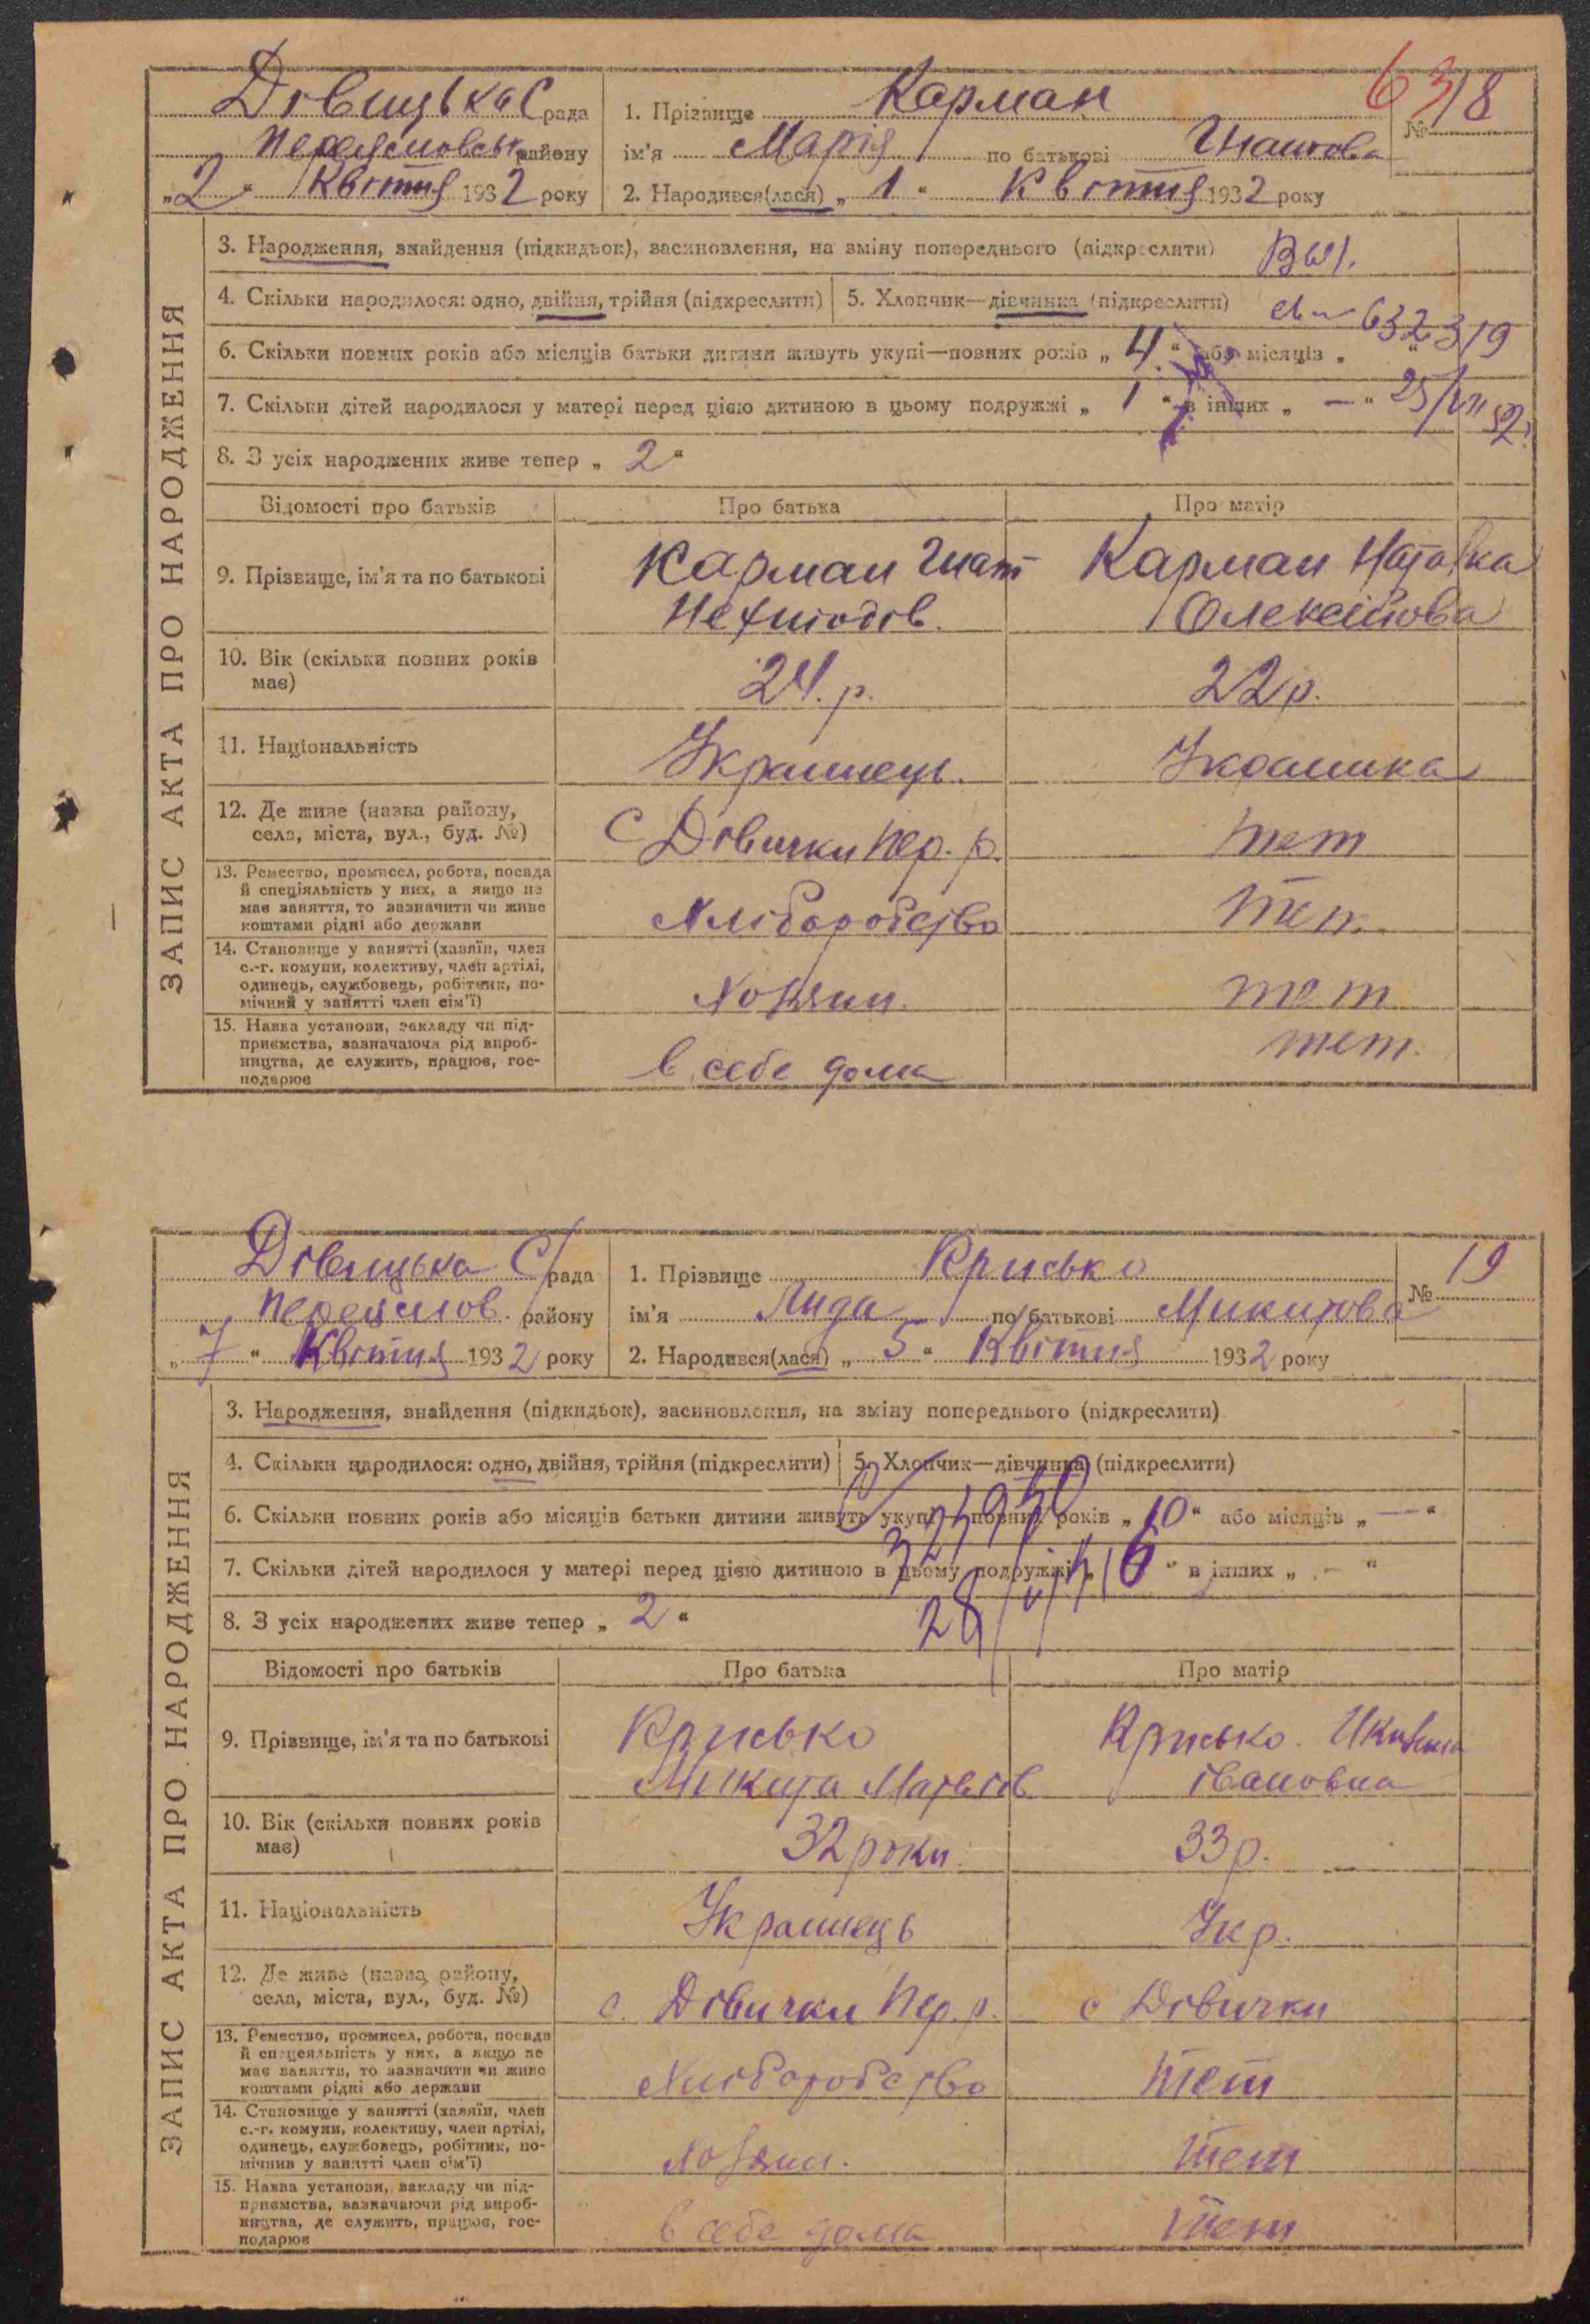 Дівицька С рада
Переяславськ району
„2“ Квітня 1932 року
1. Прізвище Карман
ім'я Марія по батькові Гнатова
№ 18
63
2. Народився(лася) „1“ Квітня 1932 року
ЗАПИС АКТА ПРО НАРОДЖЕННЯ
3. Народження, знайдення (підкидьок), засиновлення, на зміну попереднього (підкреслити)
4. Скільки народилося: одно, двійня, трійня (підкреслити)
5. Хлопчик—дівчинка (підкреслити)
632319
6. Скільки повних років або місяців батьки дитини живуть укупі—повних років „4“ або місяців „ “
7. Скільки дітей народилося у матері перед цією дитиною в цьому подружжі „1“ в інших „—“
25/VII 52
8. З усіх народжених живе тепер „2“
Відомості про батьків
Про батька
Про матір
9. Прізвище, ім'я та по батькові
Карман Гнат
Нехтодів.
Карман Наталка
Олексійова
10. Вік (скільки повних років
має)
24. р.
22 р.
11. Національність
Українець.
Українка
12. Де живе (назва району,
села, міста, вул., буд. №)
С Дівички Пер. р.
тет
13. Ремество, промисел, робота, посада
й спеціяльність у них, а якщо не
має заняття, то зазначити чи живе
коштами рідні або держави
Хліборобство
тет.
14. Становище у занятті (хазяїн, член
с.-г. комуни, колективу, член артілі,
одинець, службовець, робітник, по-
мічний у занятті член сім'ї)
Хозяин.
тет
15. Назва установи, закладу чи під-
приємства, зазначаючи рід вироб-
ництва, де служить, працює, гос-
подарює
в себе дома
тет.
Дівицька С/рада
Переяслов. району
„7“ Квітня 1932 року
1. Прізвище Крисько
ім'я Лида по батькові Микитова
№ 19
2. Народився(лася) „5“ Квітня 1932 року
ЗАПИС АКТА ПРО НАРОДЖЕННЯ
3. Народження, знайдення (підкидьок), засиновлення, на зміну попереднього (підкреслити)
4. Скільки народилося: одно, двійня, трійня (підкреслити)
5. Хлопчик—дівчинка (підкреслити)
6. Скільки повних років або місяців батьки дитини живуть укупі—повних років „10“ або місяців „—“
7. Скільки дітей народилося у матері перед цією дитиною в цьому подружжі „6“ в інших „—“
8. З усіх народжених живе тепер „2“
Відомості про батьків
Про батька
Про матір
9. Прізвище, ім'я та по батькові
Крисько
Микита Матвіїв
Крисько.
івановна
10. Вік (скільки повних років
має)
32 роки.
33 р.
11. Національність
Українець
Укр.
12. Де живе (назва району,
села, міста, вул., буд. №)
с. Дівички Пер. р.
с Дівички
13. Ремество, промисел, робота, посада
й спецеяльність у них, а якщо не
має заняття, то зазначити чи живе
коштами рідні або держави
Хліборобство
тет
14. Становище у занятті (хазяїн, член
с.-г. комуни, колективу, член артілі,
одинець, службовець, робітник, по-
мічнив у занятті член сім'ї)
Хозяин.
тет
15. Назва установи, закладу чи під-
приємства, зазначаючи рід вироб-
ництва, де служить, працює, гос-
подарює
в себе дома
тет